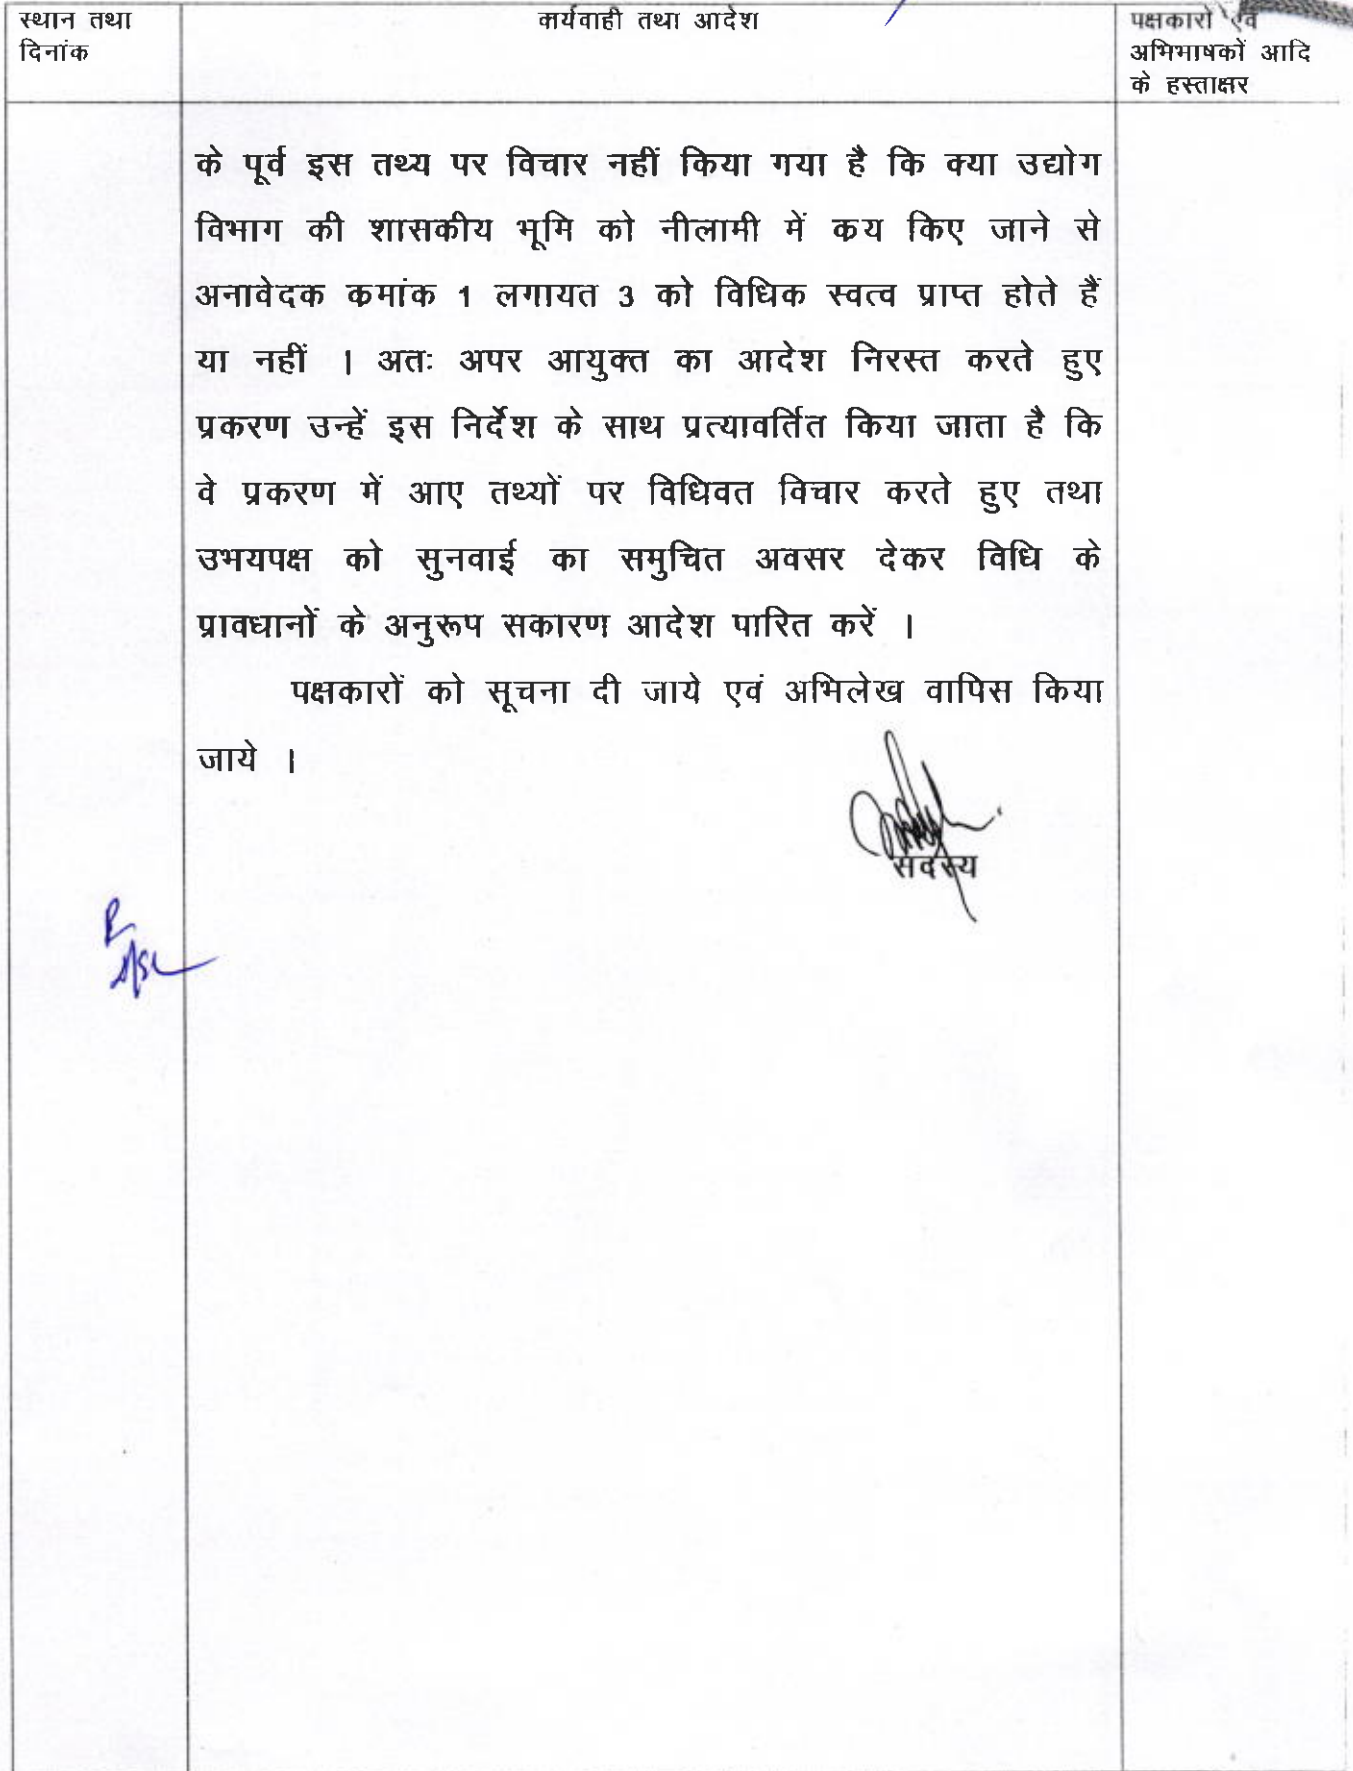 स्थान तथा
दिनांक
कार्यवाही तथा आदेश
पक्षकारों एवं
अभिभाषकों आदि
के हस्ताक्षर
के पूर्व इस तथ्य पर विचार नहीं किया गया है कि क्या उद्योग
विभाग की शासकीय भूमि को नीलामी में कय किए जाने से
अनावेदक कमांक 1 लगायत 3 को विधिक स्वत्व प्राप्त होते हैं
या नहीं । अतः अपर आयुक्त का आदेश निरस्त करते हुए
प्रकरण उन्हें इस निर्देश के साथ प्रत्यावर्तित किया जाता है कि
वे प्रकरण में आए तथ्यों पर विधिवत विचार करते हुए तथा
उभयपक्ष को सुनवाई का समुचित अवसर देकर विधि के
प्रावधानों के अनुरूप सकारण आदेश पारित करें ।
पक्षकारों को सूचना दी जाये एवं अभिलेख वापिस किया
जाये ।
सदस्य